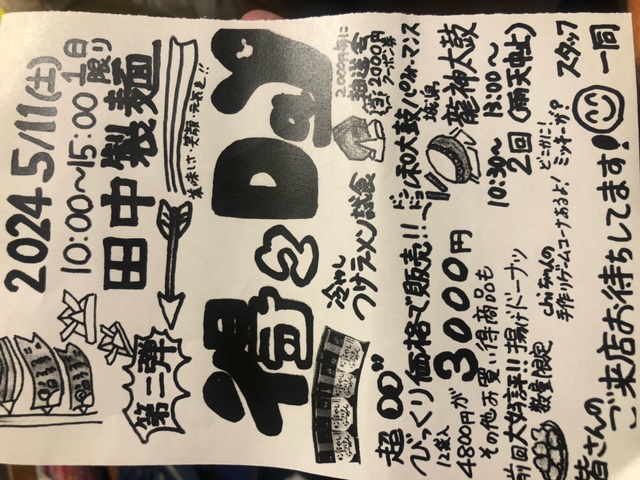 2024 5/11(土)
10:00〜15:00 1日限り
田中製麺
美味しさ 笑顔 元気を!!
第二弾
得々Day
2000円毎に
抽選会
2000円
クーポン券
冷やし
つけラーメン試食
超
びっくり価格で販売!!
12束入
4800円が3000円
その他お買い得商品も
前回大好評!! 揚げドーナツ
数量限定
和太鼓パフォーマンス
龍神太鼓
10:30〜 13:00〜
2回(雨天中止)
どこかに!
ミッキーが?
chiちゃんの
手作りゲームコーナあるよ!
皆さんの
ご来店お待ちしてます!
スタッフ
一同